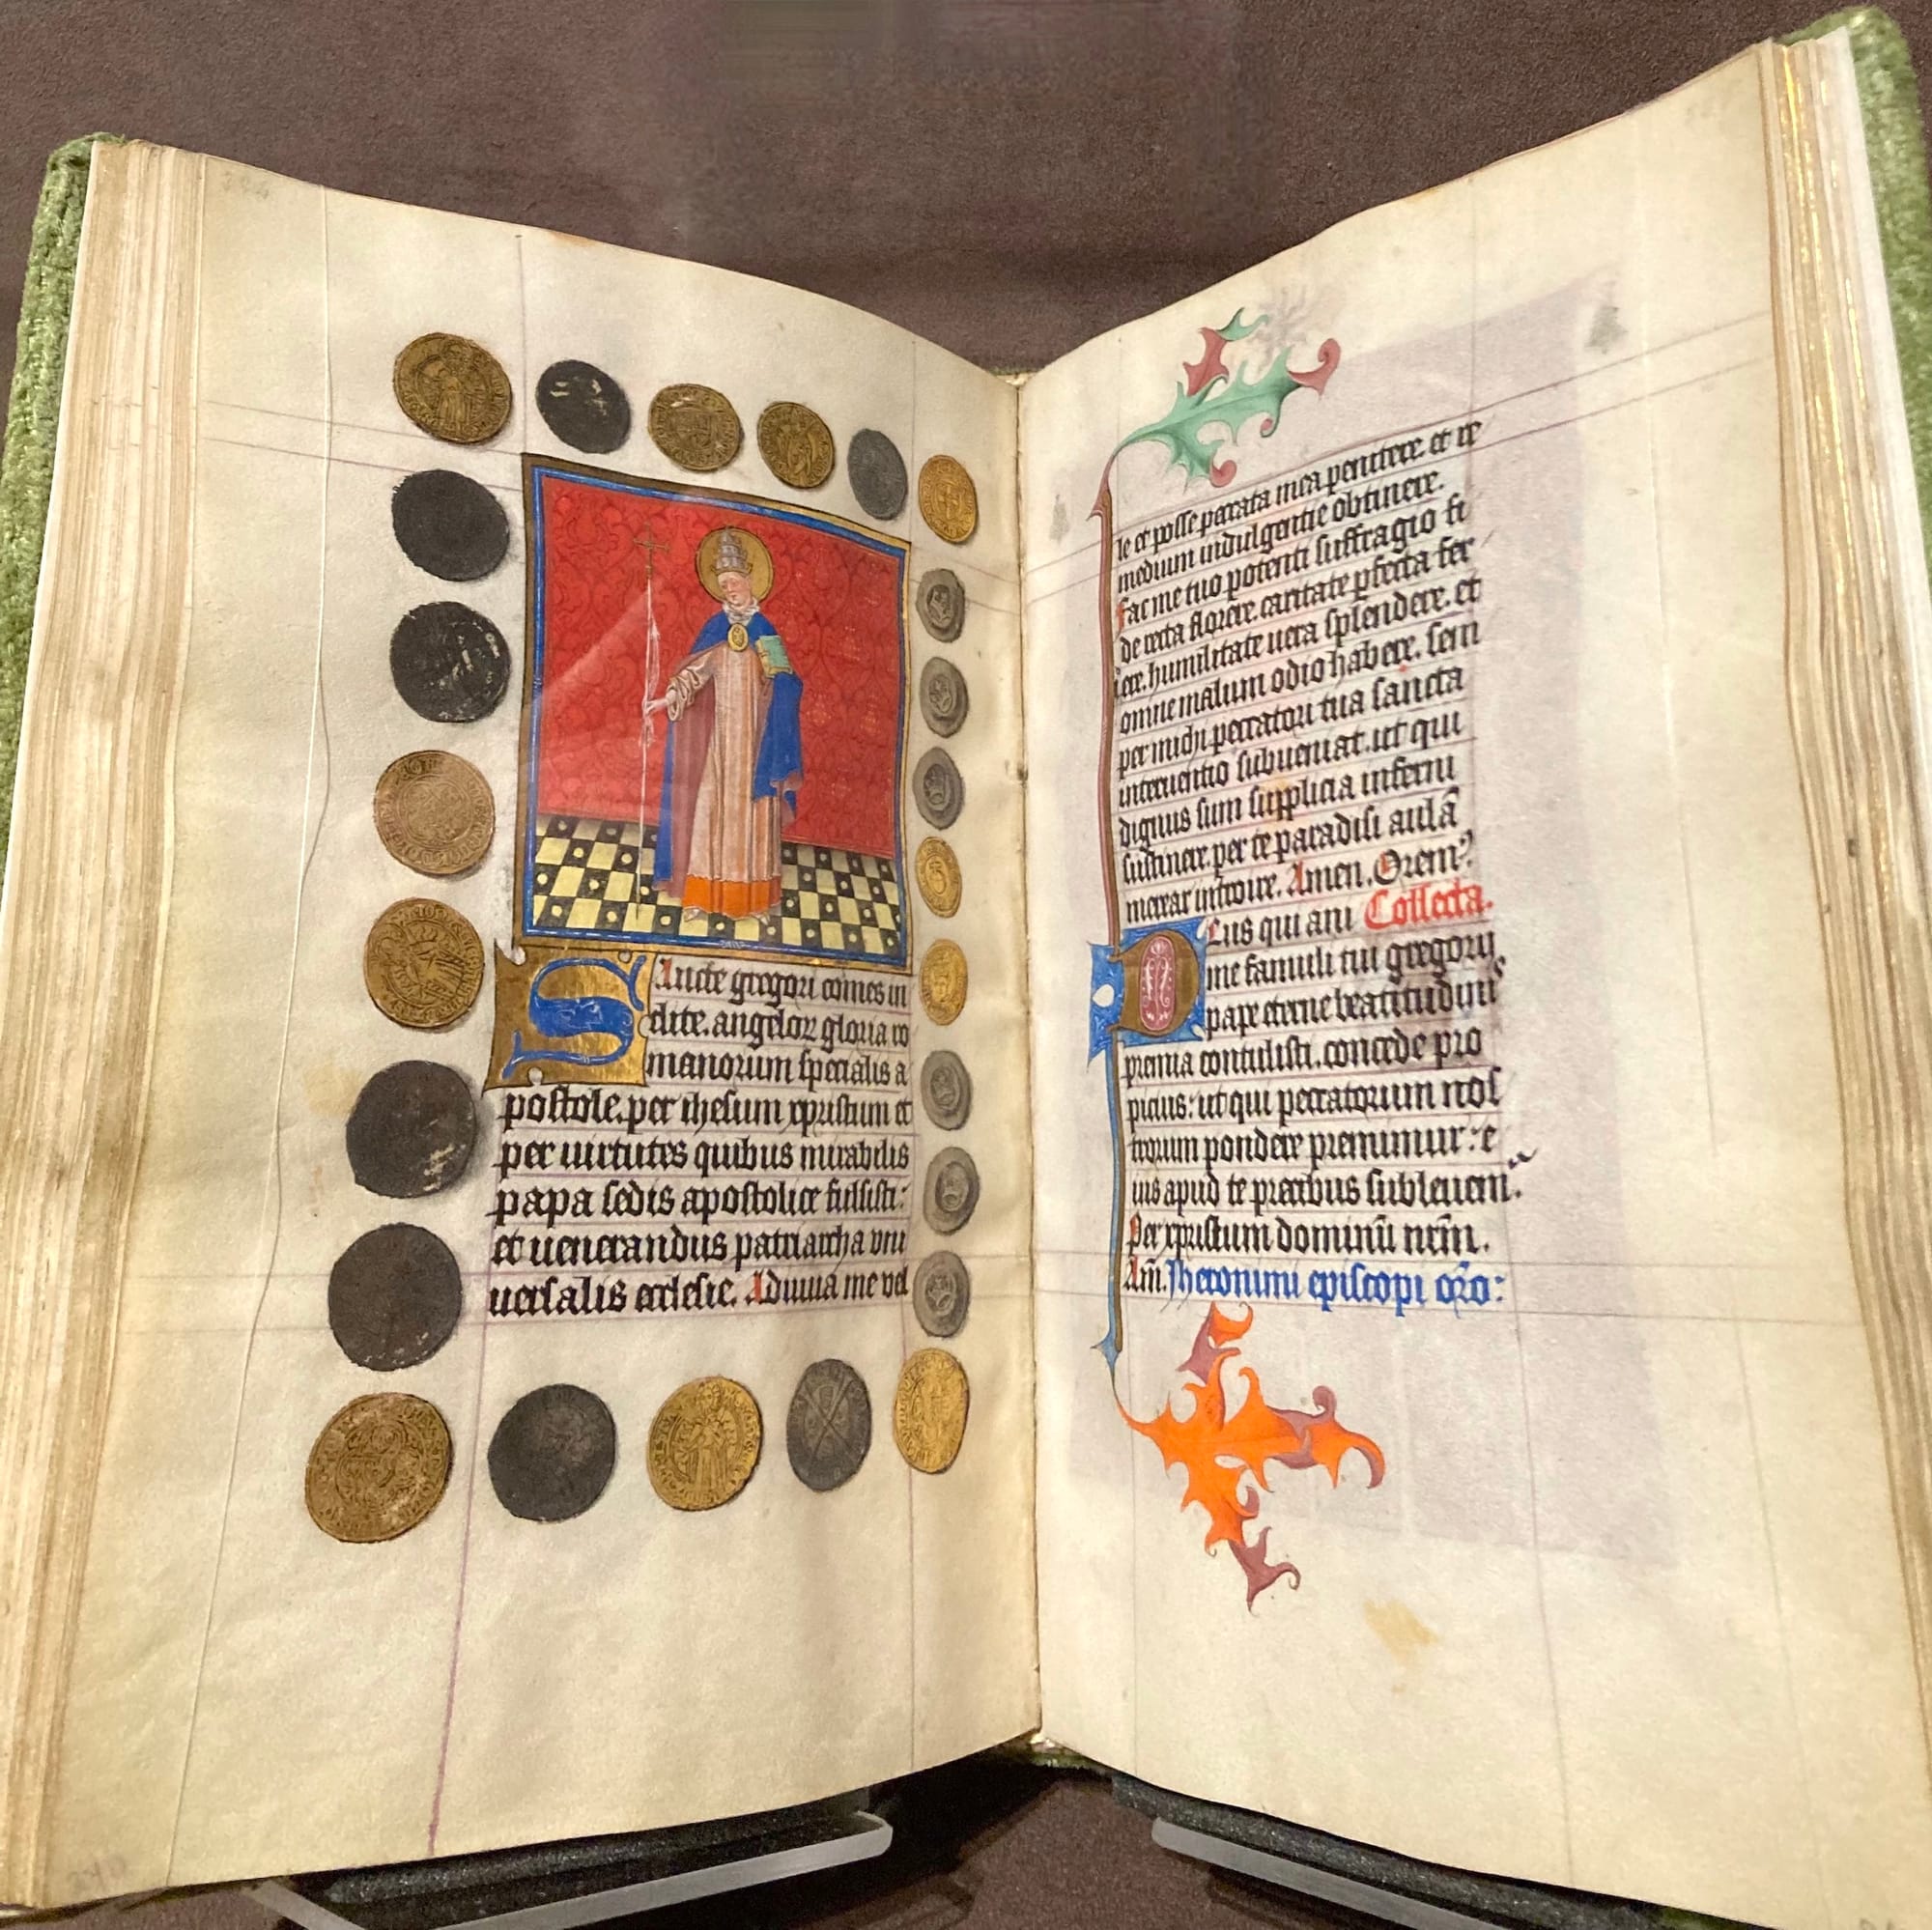 Sancte gregori comes in
clite. angeloꝝ gloria ro
manorum specialis a
postole. per ihesum xpristum et
per uirtutes quibus mirabilis
papa sedis apostolice fulsisti:
et uenerandus patriarcha vni
uersalis ecclesie. Adiuua me vel
le et posse peccata mea penitere. et re
medium indulgentie obtinere.
Fac me tuo potenti suffragio fi
de recta florere. caritate pfecta fer
uere. humilitate uera splendere. et
omne malum odio habere. sem
per michi peccatori tua sancta
interuentio subueniat. ut qui
dignus sum supplicia inferni
sustinere. per te paradisi aulā
merear introire. Amen. Orem⁹.
Deus qui ani Collecta.
me famuli tui gregorij
pape eterne beatitudinis
premia contulisti. concede pro
picius: ut qui peccatorum nos
trorum pondere premimur: e
ius apud te precibus subleuem̄.
Per xpristum dominū nr̄m.
Am̄. Jheronimi episcopi or̄o: